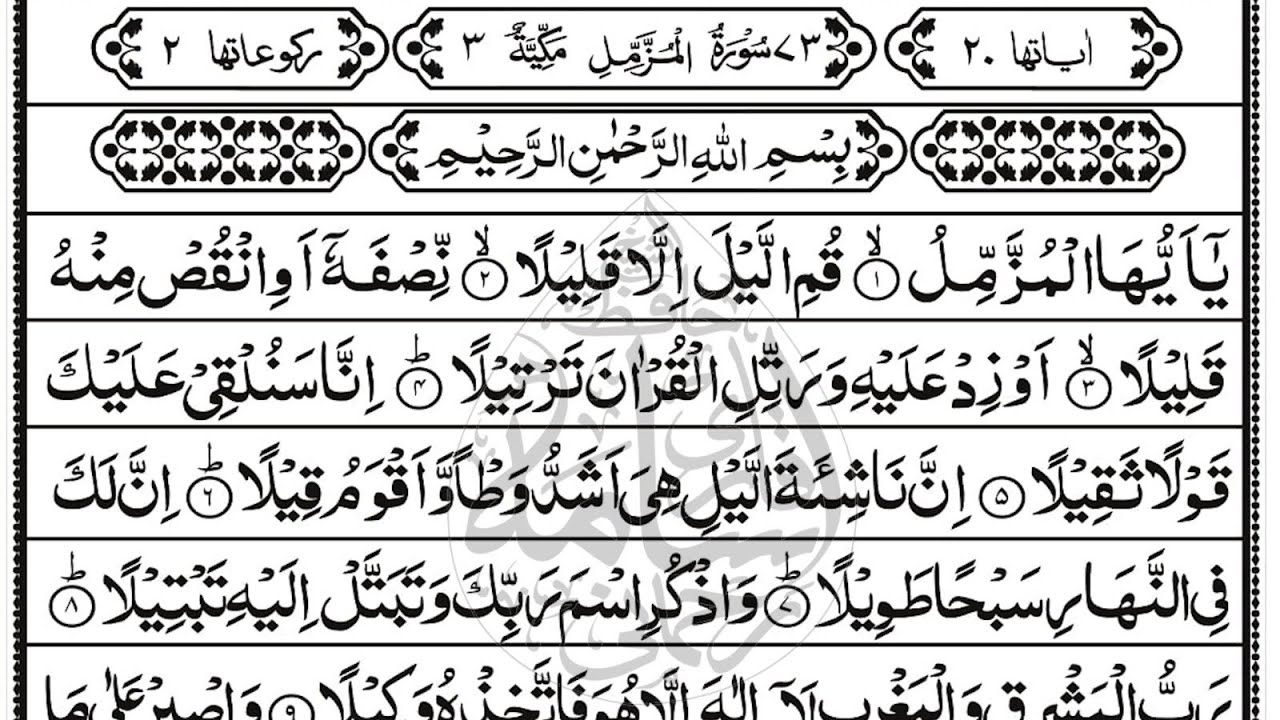 اٰیاتها ٢٠ ٧٣ سُوْرَةُ الْمُزَّمِّلِ مَكِّيَّةٌ ٣ ركوعاتها ٢
بِسْمِ اللهِ الرَّحْمٰنِ الرَّحِيْمِ
يٰٓاَيُّهَا الْمُزَّمِّلُ ١ۙ قُمِ الَّيْلَ اِلَّا قَلِيْلًا ٢ۙ نِّصْفَهٗٓ اَوِ انْقُصْ مِنْهُ
قَلِيْلًا ٣ۙ اَوْ زِدْ عَلَيْهِ وَرَتِّلِ الْقُرْاٰنَ تَرْتِيْلًا ٤ؕ اِنَّا سَنُلْقِيْ عَلَيْكَ
قَوْلًا ثَقِيْلًا ٥ اِنَّ نَاشِئَةَ الَّيْلِ هِيَ اَشَدُّ وَطْاً وَّاَقْوَمُ قِيْلًا ٦ؕ اِنَّ لَكَ
فِي النَّهَارِ سَبْحًا طَوِيْلًا ٧ؕ وَاذْكُرِ اسْمَ رَبِّكَ وَتَبَتَّلْ اِلَيْهِ تَبْتِيْلًا ٨ؕ
رَبُّ الْمَشْرِقِ وَالْمَغْرِبِ لَآ اِلٰهَ اِلَّا هُوَ فَاتَّخِذْهُ وَكِيْلًا ٩ وَاصْبِرْ عَلٰى مَا